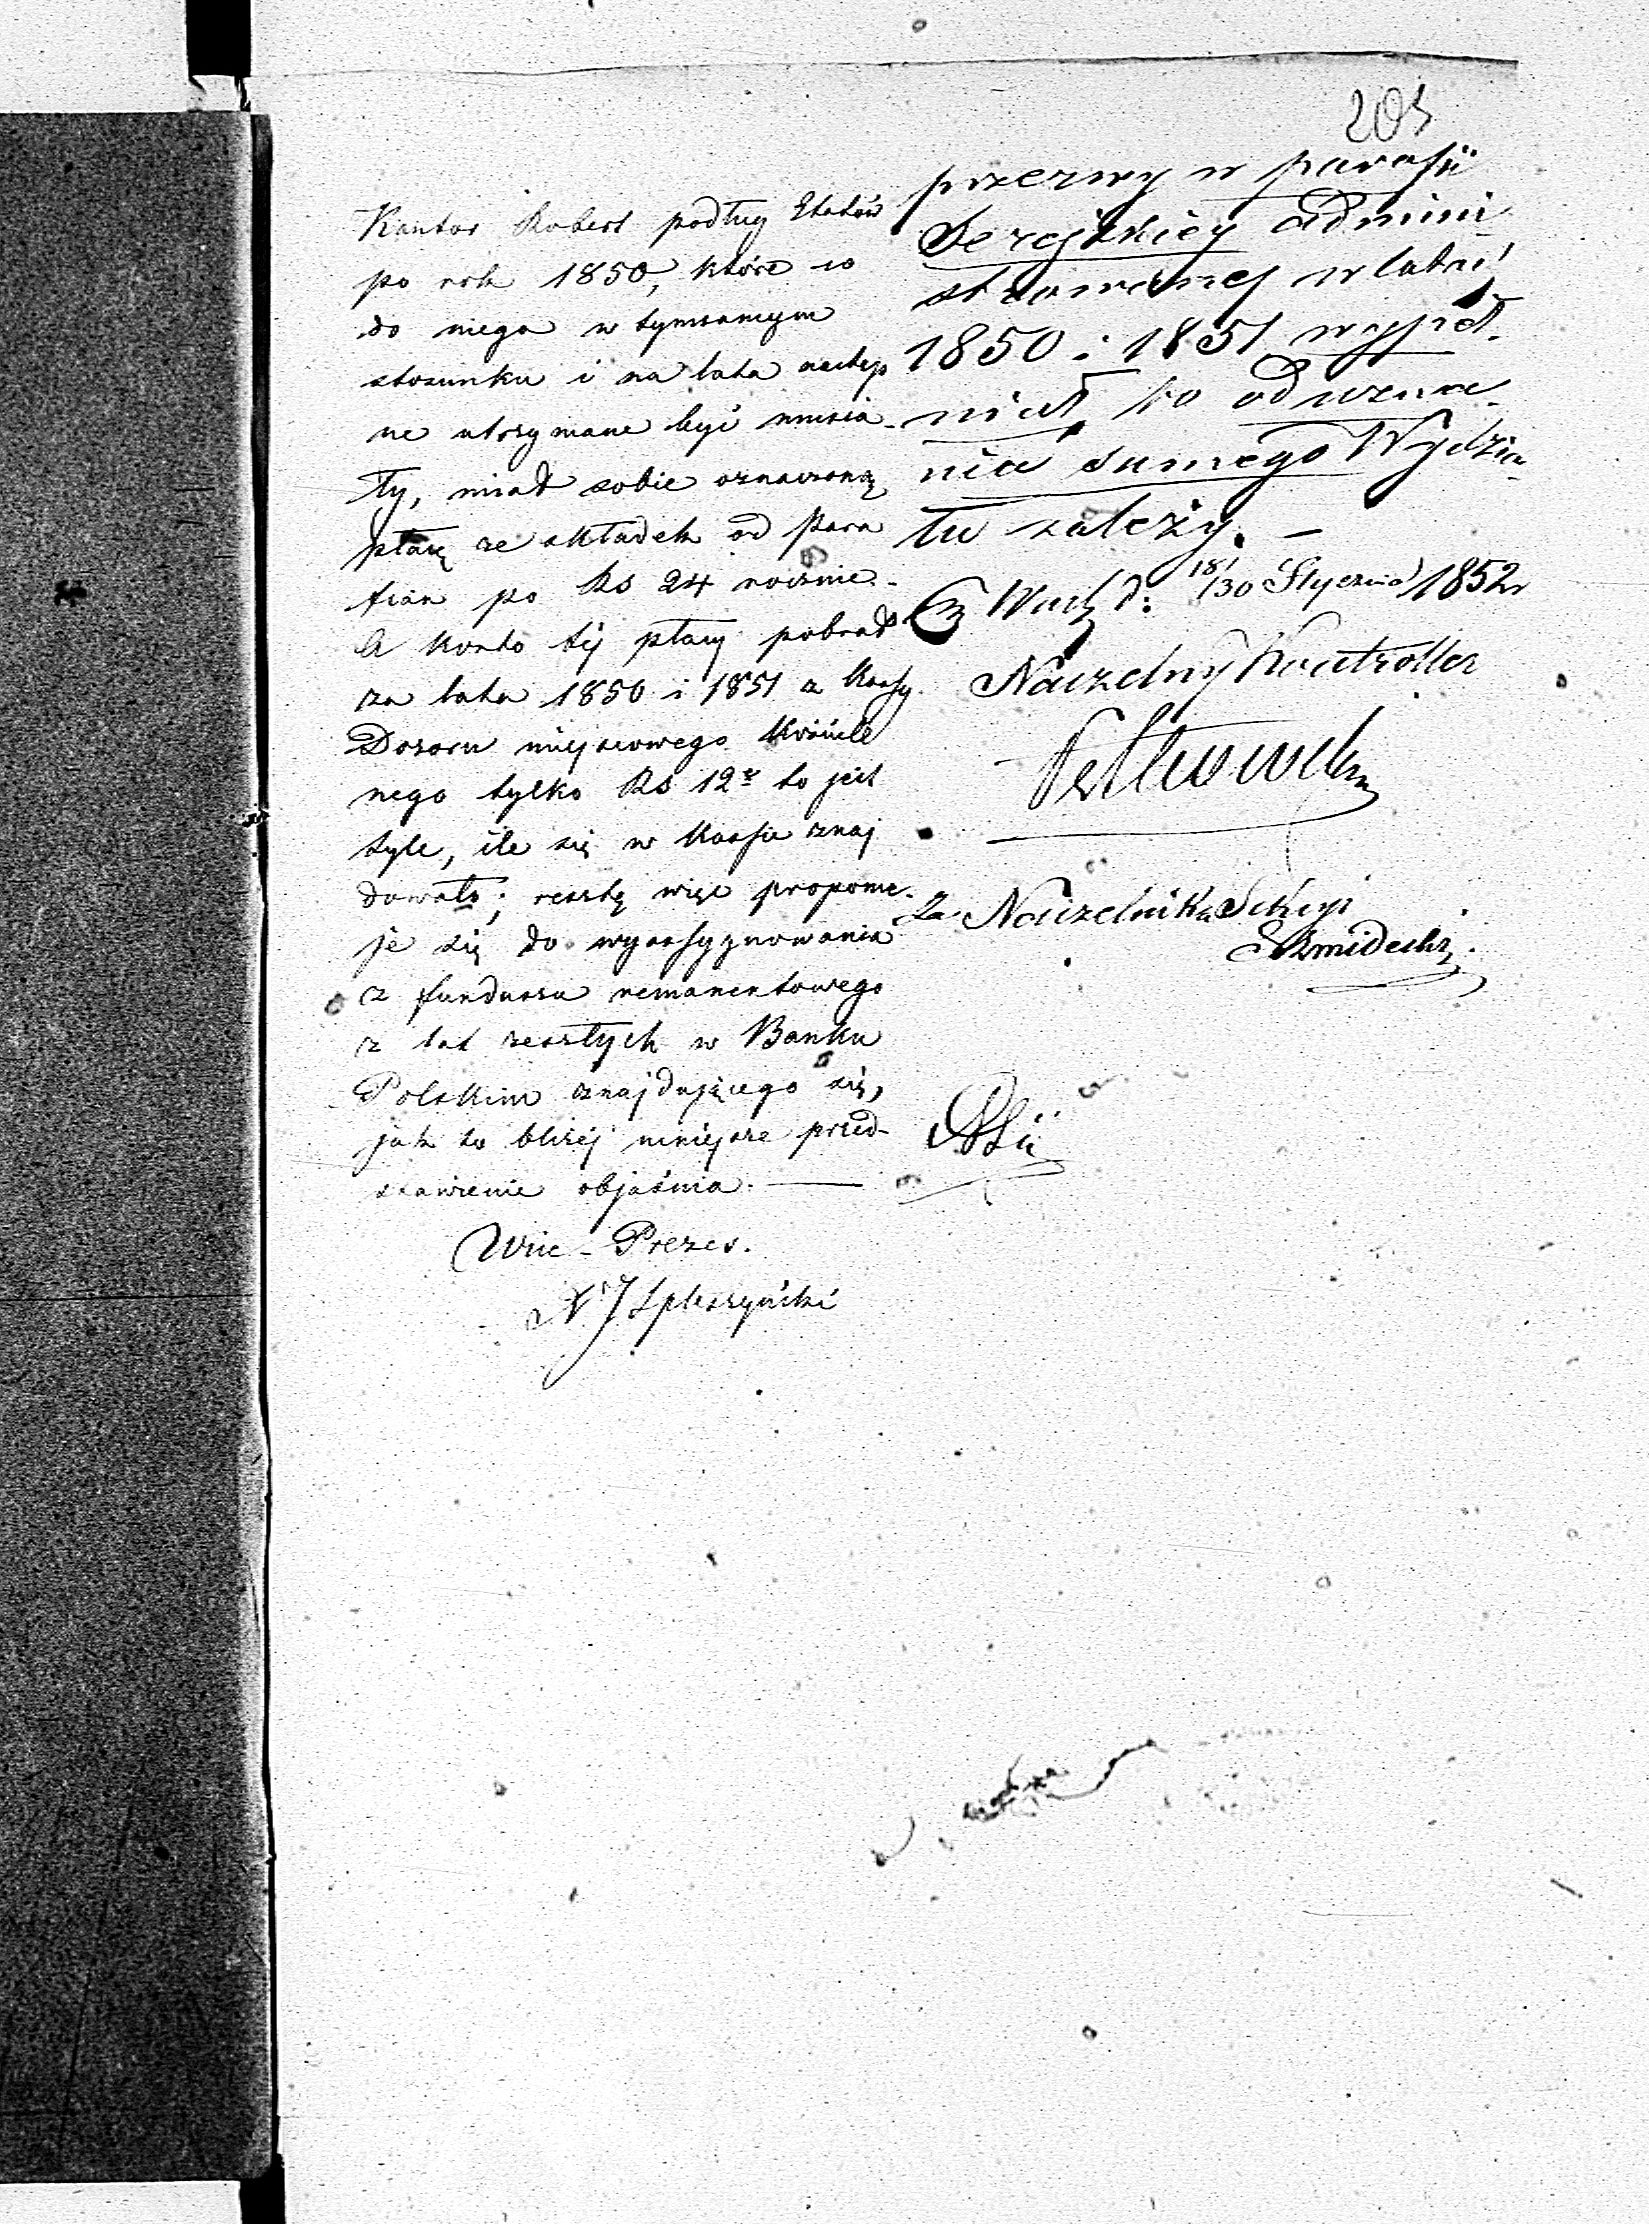 203
Kantor Robert podług Etatów
po rok 1850, które co
do niego w tymsamym
stosunku i na lata następ
ne utrzymane być musia-
ły, miał sobie oznaczoną
płacę ze składek od para
fian po Rs 24 rocznie.
A konto téj płacy pobrał
za lata 1850 i 1851 z Kassy
Dozoru miejscowego Kościel
nego tylko Rs 12 to jest
tyle, ile się w Kassie znaj
dowało; resztę więc propone-
je się do wyassygnowania
z funduszu remanentowego
z lat zeszłych w Banku
Polskim znajdującego się,
jak to bliżéj niniejsze przed-
stawienie objaśnia. —
Wice-Prezes.
przerwy w parafii
Serejskiéy admini-
strowanej w latać
1850 i 1851 wypeł-
niał, to od uzna-
nia samego Wydzia-
łu zależy. —
d: 18/30 Stycznia 1852 r
Naczelny Kontroller
Za Naczelnika Sekcyi